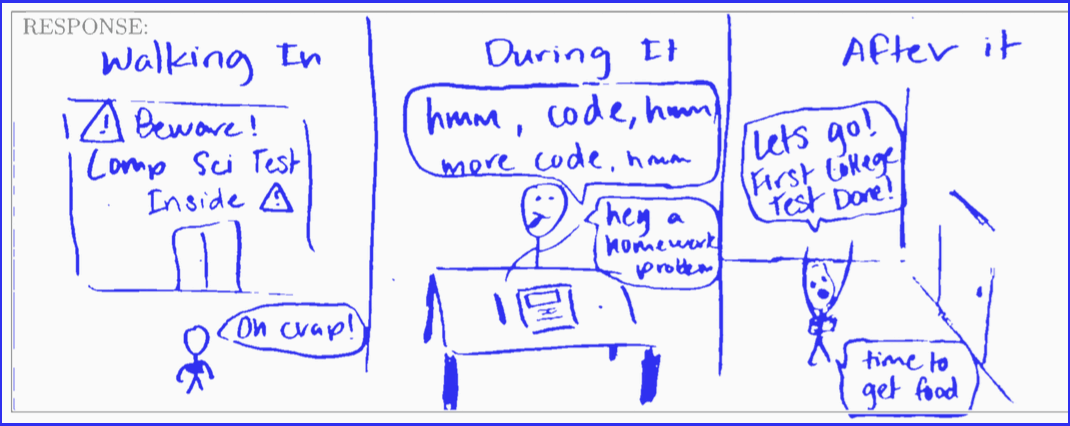 RESPONSE:
Walking In
⚠ Beware!
Comp Sci Test
Inside ⚠
Oh crap!
During It
hmm, code, hmm
more code, hmm
hey a
homework
problem
After it
Lets go!
First College
Test Done!
time to
get food